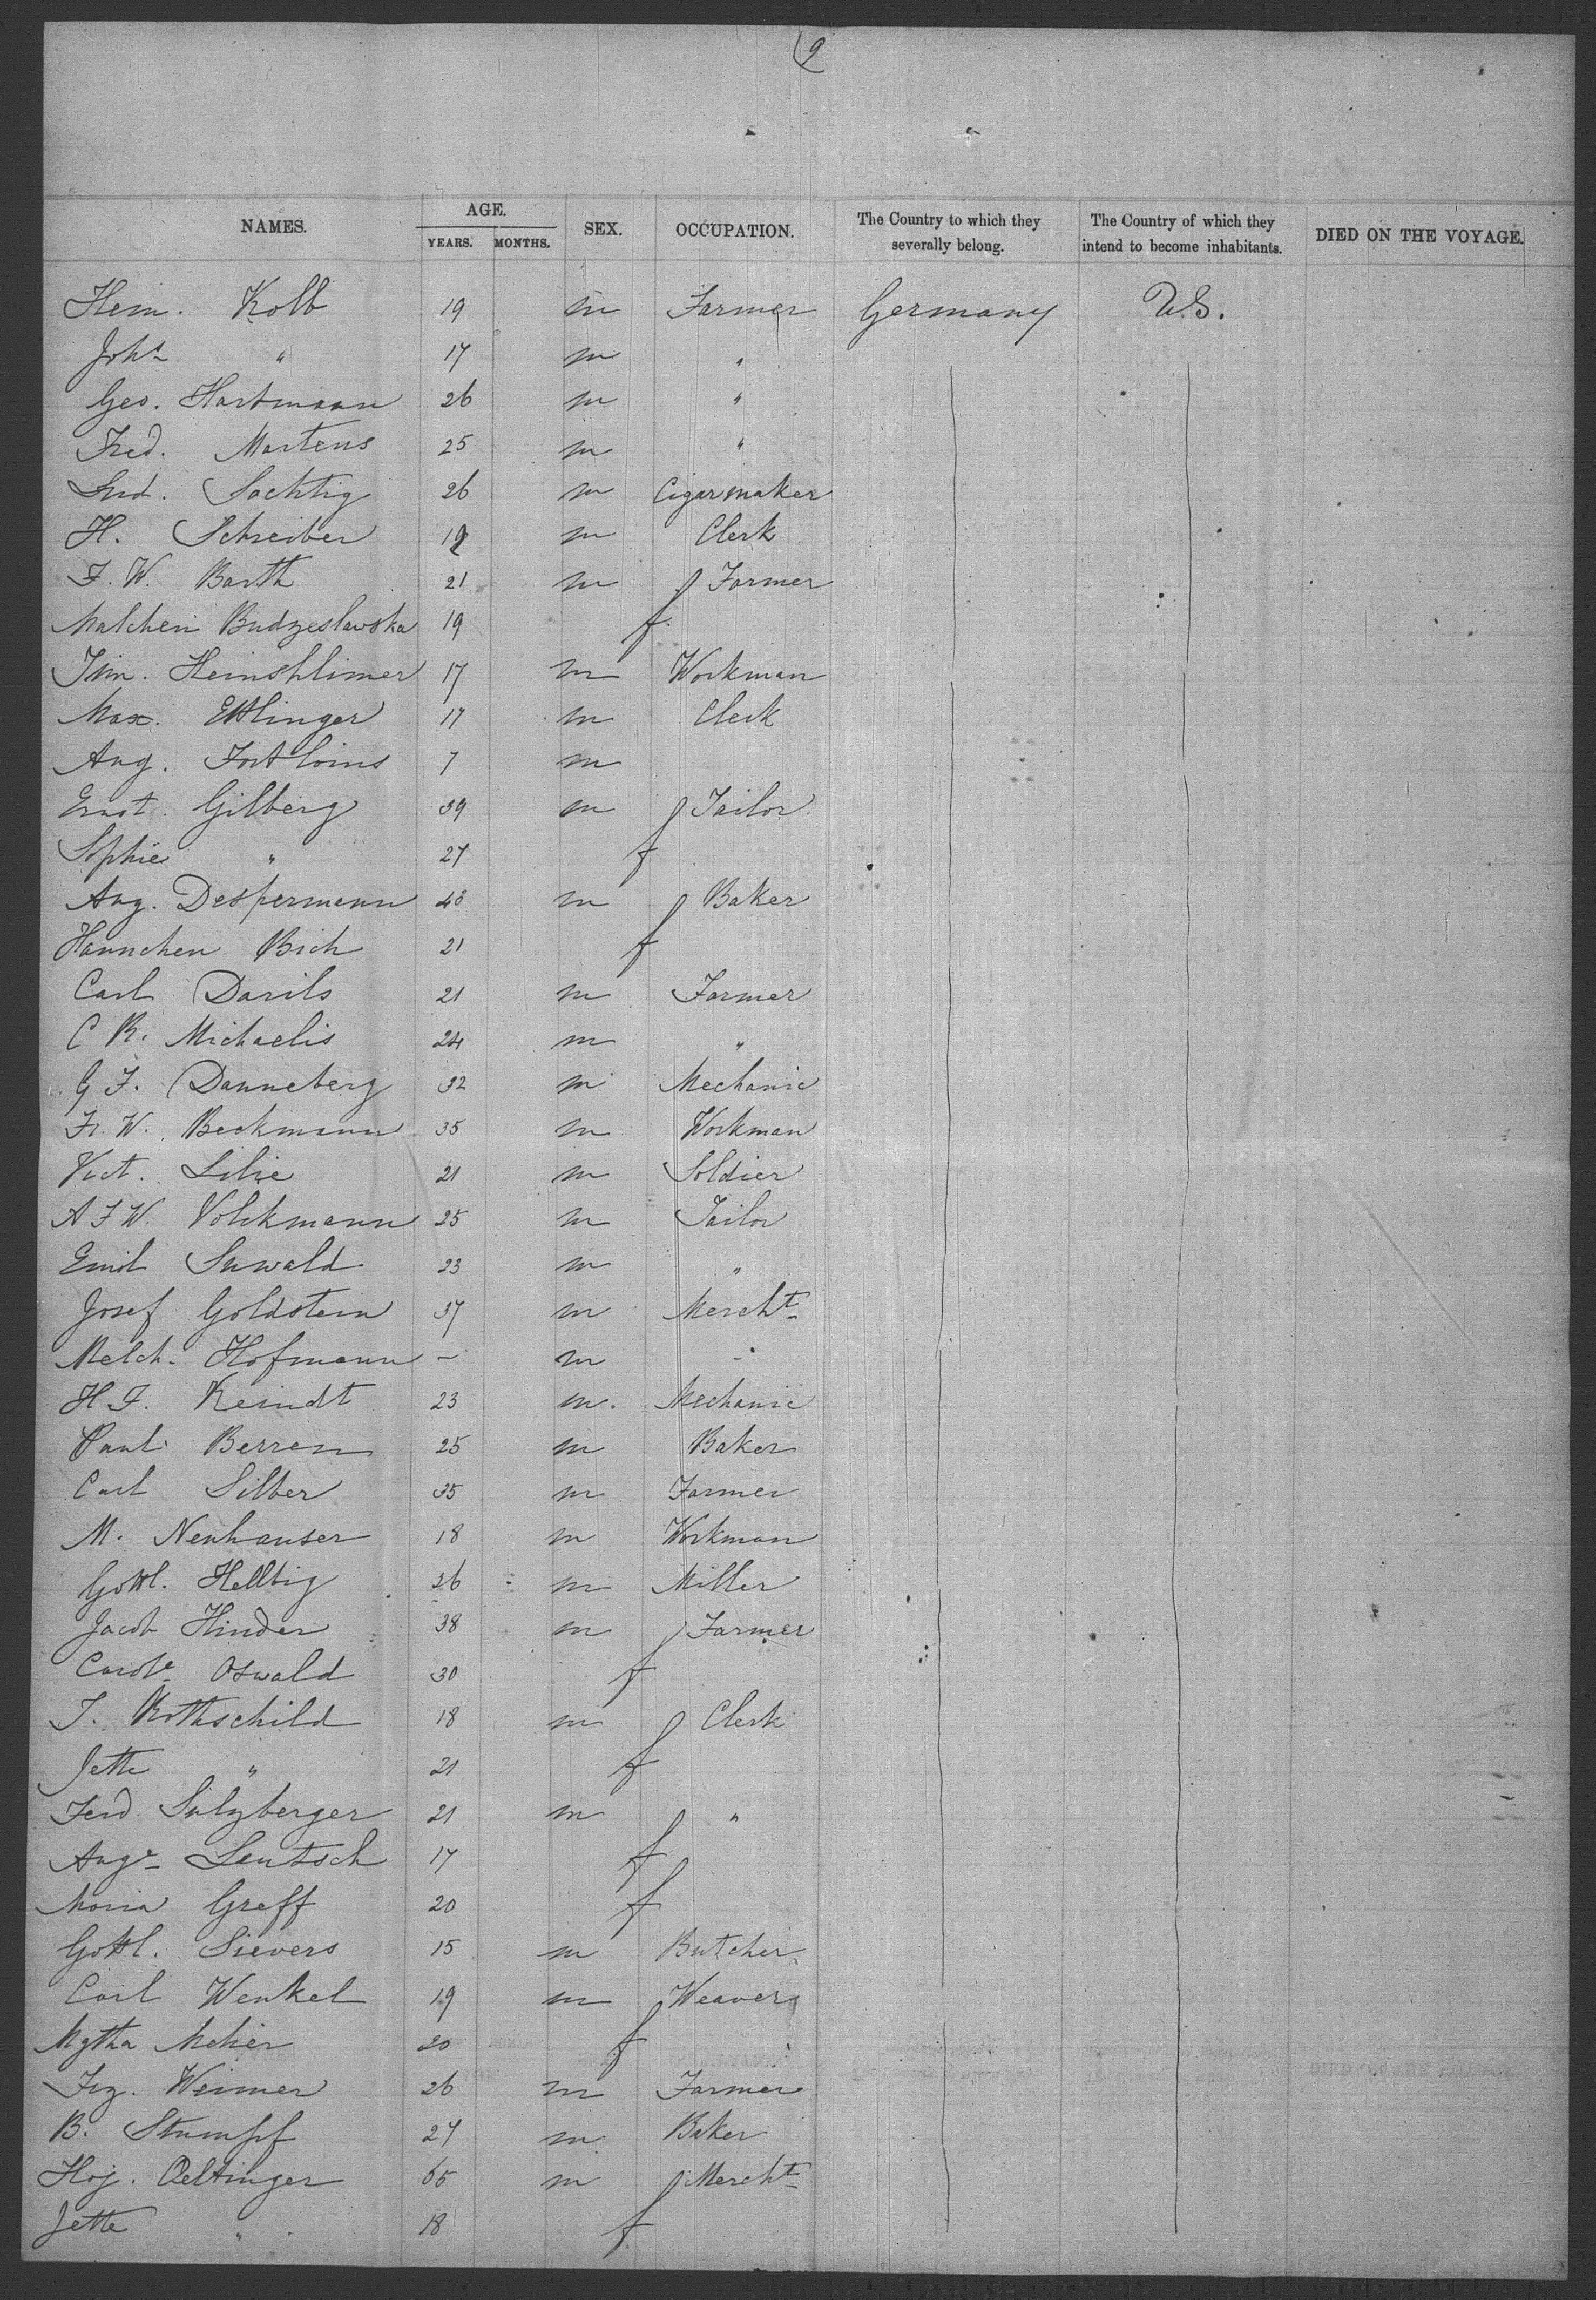 9
NAMES. AGE. YEARS. MONTHS. SEX. OCCUPATION. The Country to which they severally belong. The Country of which they intend to become inhabitants. DIED ON THE VOYAGE.
Hein. Kolb 19 m Farmer Germany U.S.
Joh. " 17 m "
Geo. Hartmann 26 m "
Fred. Martens 25 m "
Lud. Sachtig 26 m Cigarmaker
H. Schreiber m Clerk
F. W. Barth 21 m Farmer
Malchen Budzeslawska 19 f
Heinshlimer 17 m Workman
Max. Ettlinger 17 m Clerk
Aug. 7 m
Ernst. Gilberg 39 m Tailor
Sophie " 27 f
Aug. Despermann m Baker
Hannchen Bich 21 f
Carl Darils 21 m Farmer
C R. Michaelis 24 m "
G F. Danneberg 32 m Mechanic
Fr. W. Beckmann 35 m Workman
Vict. Lilie 21 m Soldier
A F W. Volckmann 25 m Tailor
Emil Suwald 23 m "
Josef Goldstein 37 m Mercht
Melch. Hofmann - m -
H F. Reindt 23 m. Mechanic
Paul Berren 25 m Baker
Carl Silber 35 m Farmer
M. Neuhauser 18 m Workman
Gottl. Hellbig 26 m Miller
Jacob Hinder 38 m Farmer
Carole Oswald 30 f
J. Rothschild 18 m Clerk
Jette " 21 f
Ferd. Sulzberger 21 m "
Auge Lautsch 17 f
Maria Greff 20 f
Gottl. Sievers 15 m Butcher
Carl Wenkel 19 m Weaver
Mgtha Meher 20 f
Frz. Weimer 26 m Farmer
B. Stumpf 27 m Baker
Oeltinger 65 m Mercht
Jette " 18 f